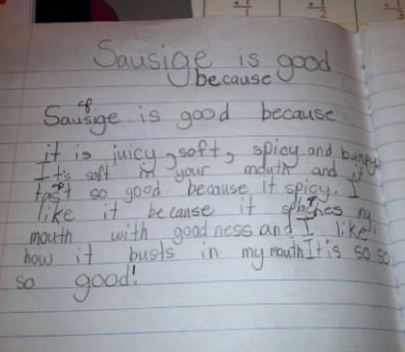 Sausige is good
because
Sausige is good because
it is juicy, soft, spicy and
It's soft in your mouth and it
tast so good because it spicy. I
like it because it my
mouth with goodness and I like
how it busts in my mouth It is so so
so good!